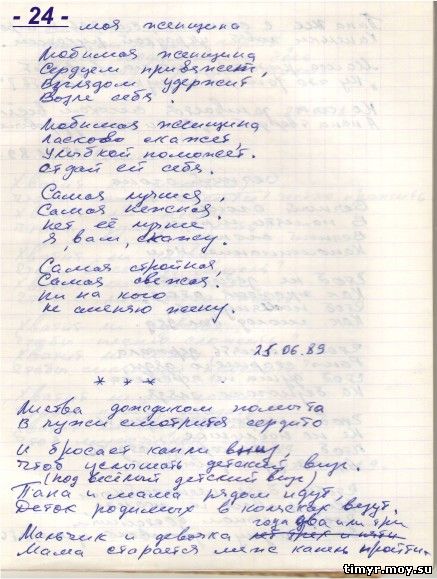 - 24 -
моя женщина
Любимая женщина
Сердцем привяжет,
Взглядом удержит
Возле себя.
Любимая женщина
Ласково скажет,
Улыбкой поможет,
Отдай ей себя.
Самая лучшая,
Самая нежная,
Нет её лучше
Я, вам, скажу.
Самая стройная,
Самая свежая.
Ни на кого
не сменяю жену.
25.06.89
* * *
Листва дождиком помыта
В лужи смотрится сердито
И бросает капли вниз,
Чтоб услышать детский визг.
(Под весёлый детский визг)
Папа и мама рядом идут,
Деток родимых в колясках везут.
года два или три
Мальчик и девочка лет трех и пяти
Мама старается меж капель пройти.
timyr.moy.su